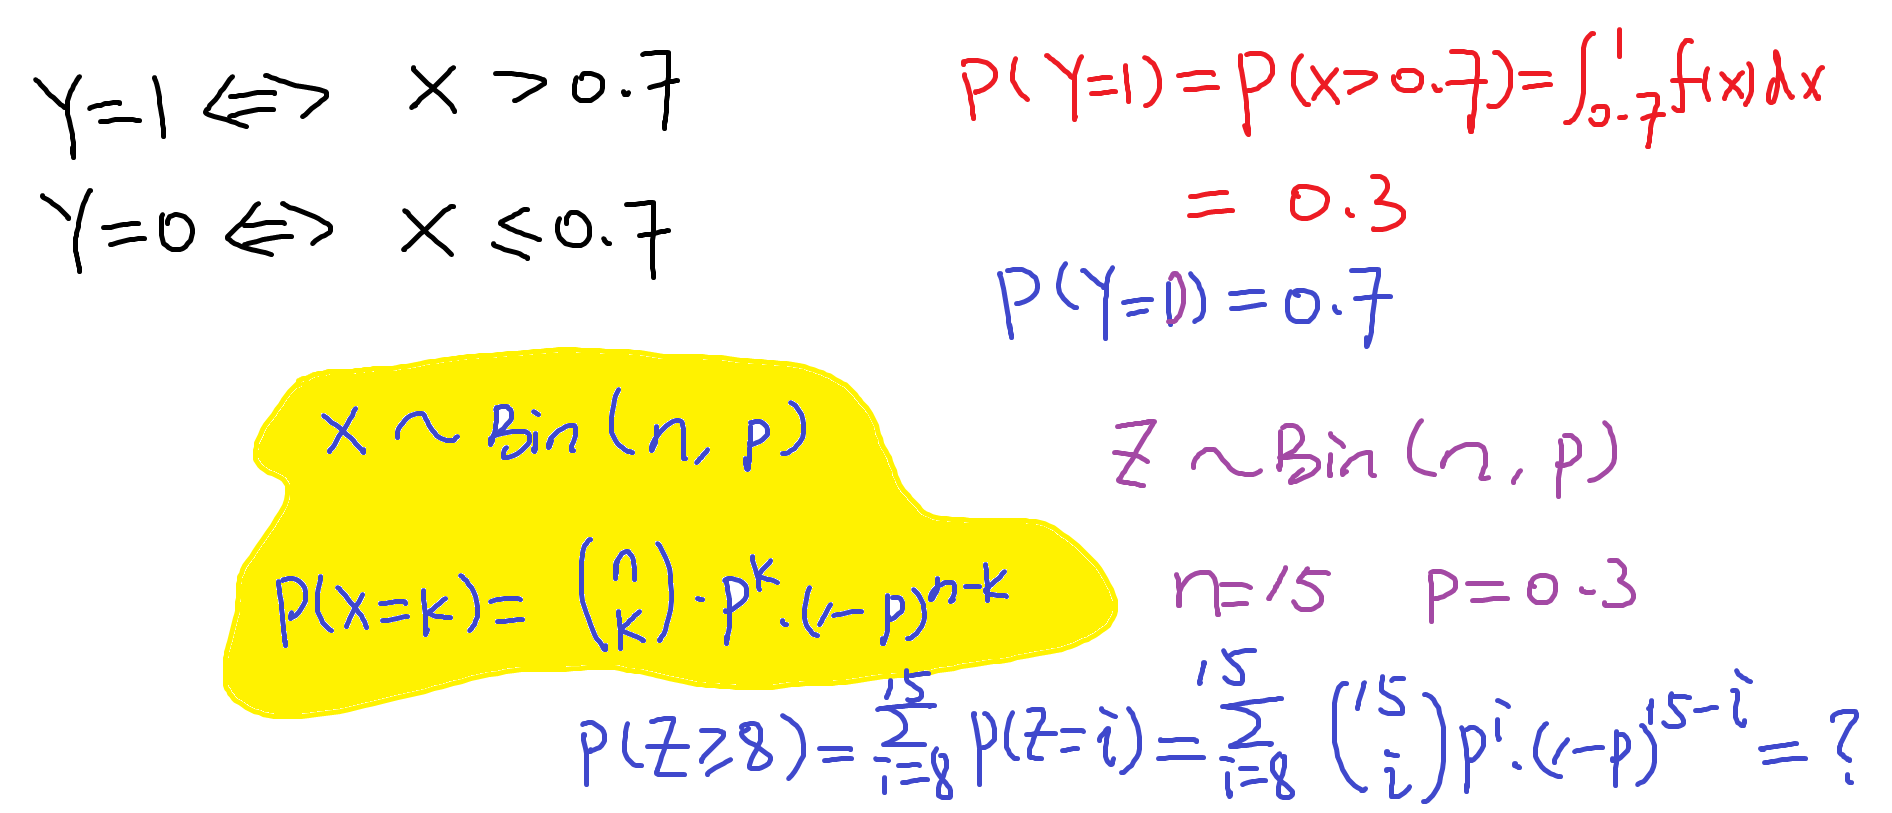 Y=1 ⟺ X > 0.7
Y=0 ⟺ X ≤ 0.7
P(Y=1) = P(X>0.7) = ∫_{0.7}^{1} f(x)dx
= 0.3
P(Y=0) = 0.7
X ~ Bin(n, p)
P(X=k) = \binom{n}{k} · p^k · (1-p)^{n-k}
Z ~ Bin(n, p)
n=15 p=0.3
P(Z≥8) = ∑_{i=8}^{15} P(Z=i) = ∑_{i=8}^{15} \binom{15}{i} p^i · (1-p)^{15-i} = ?